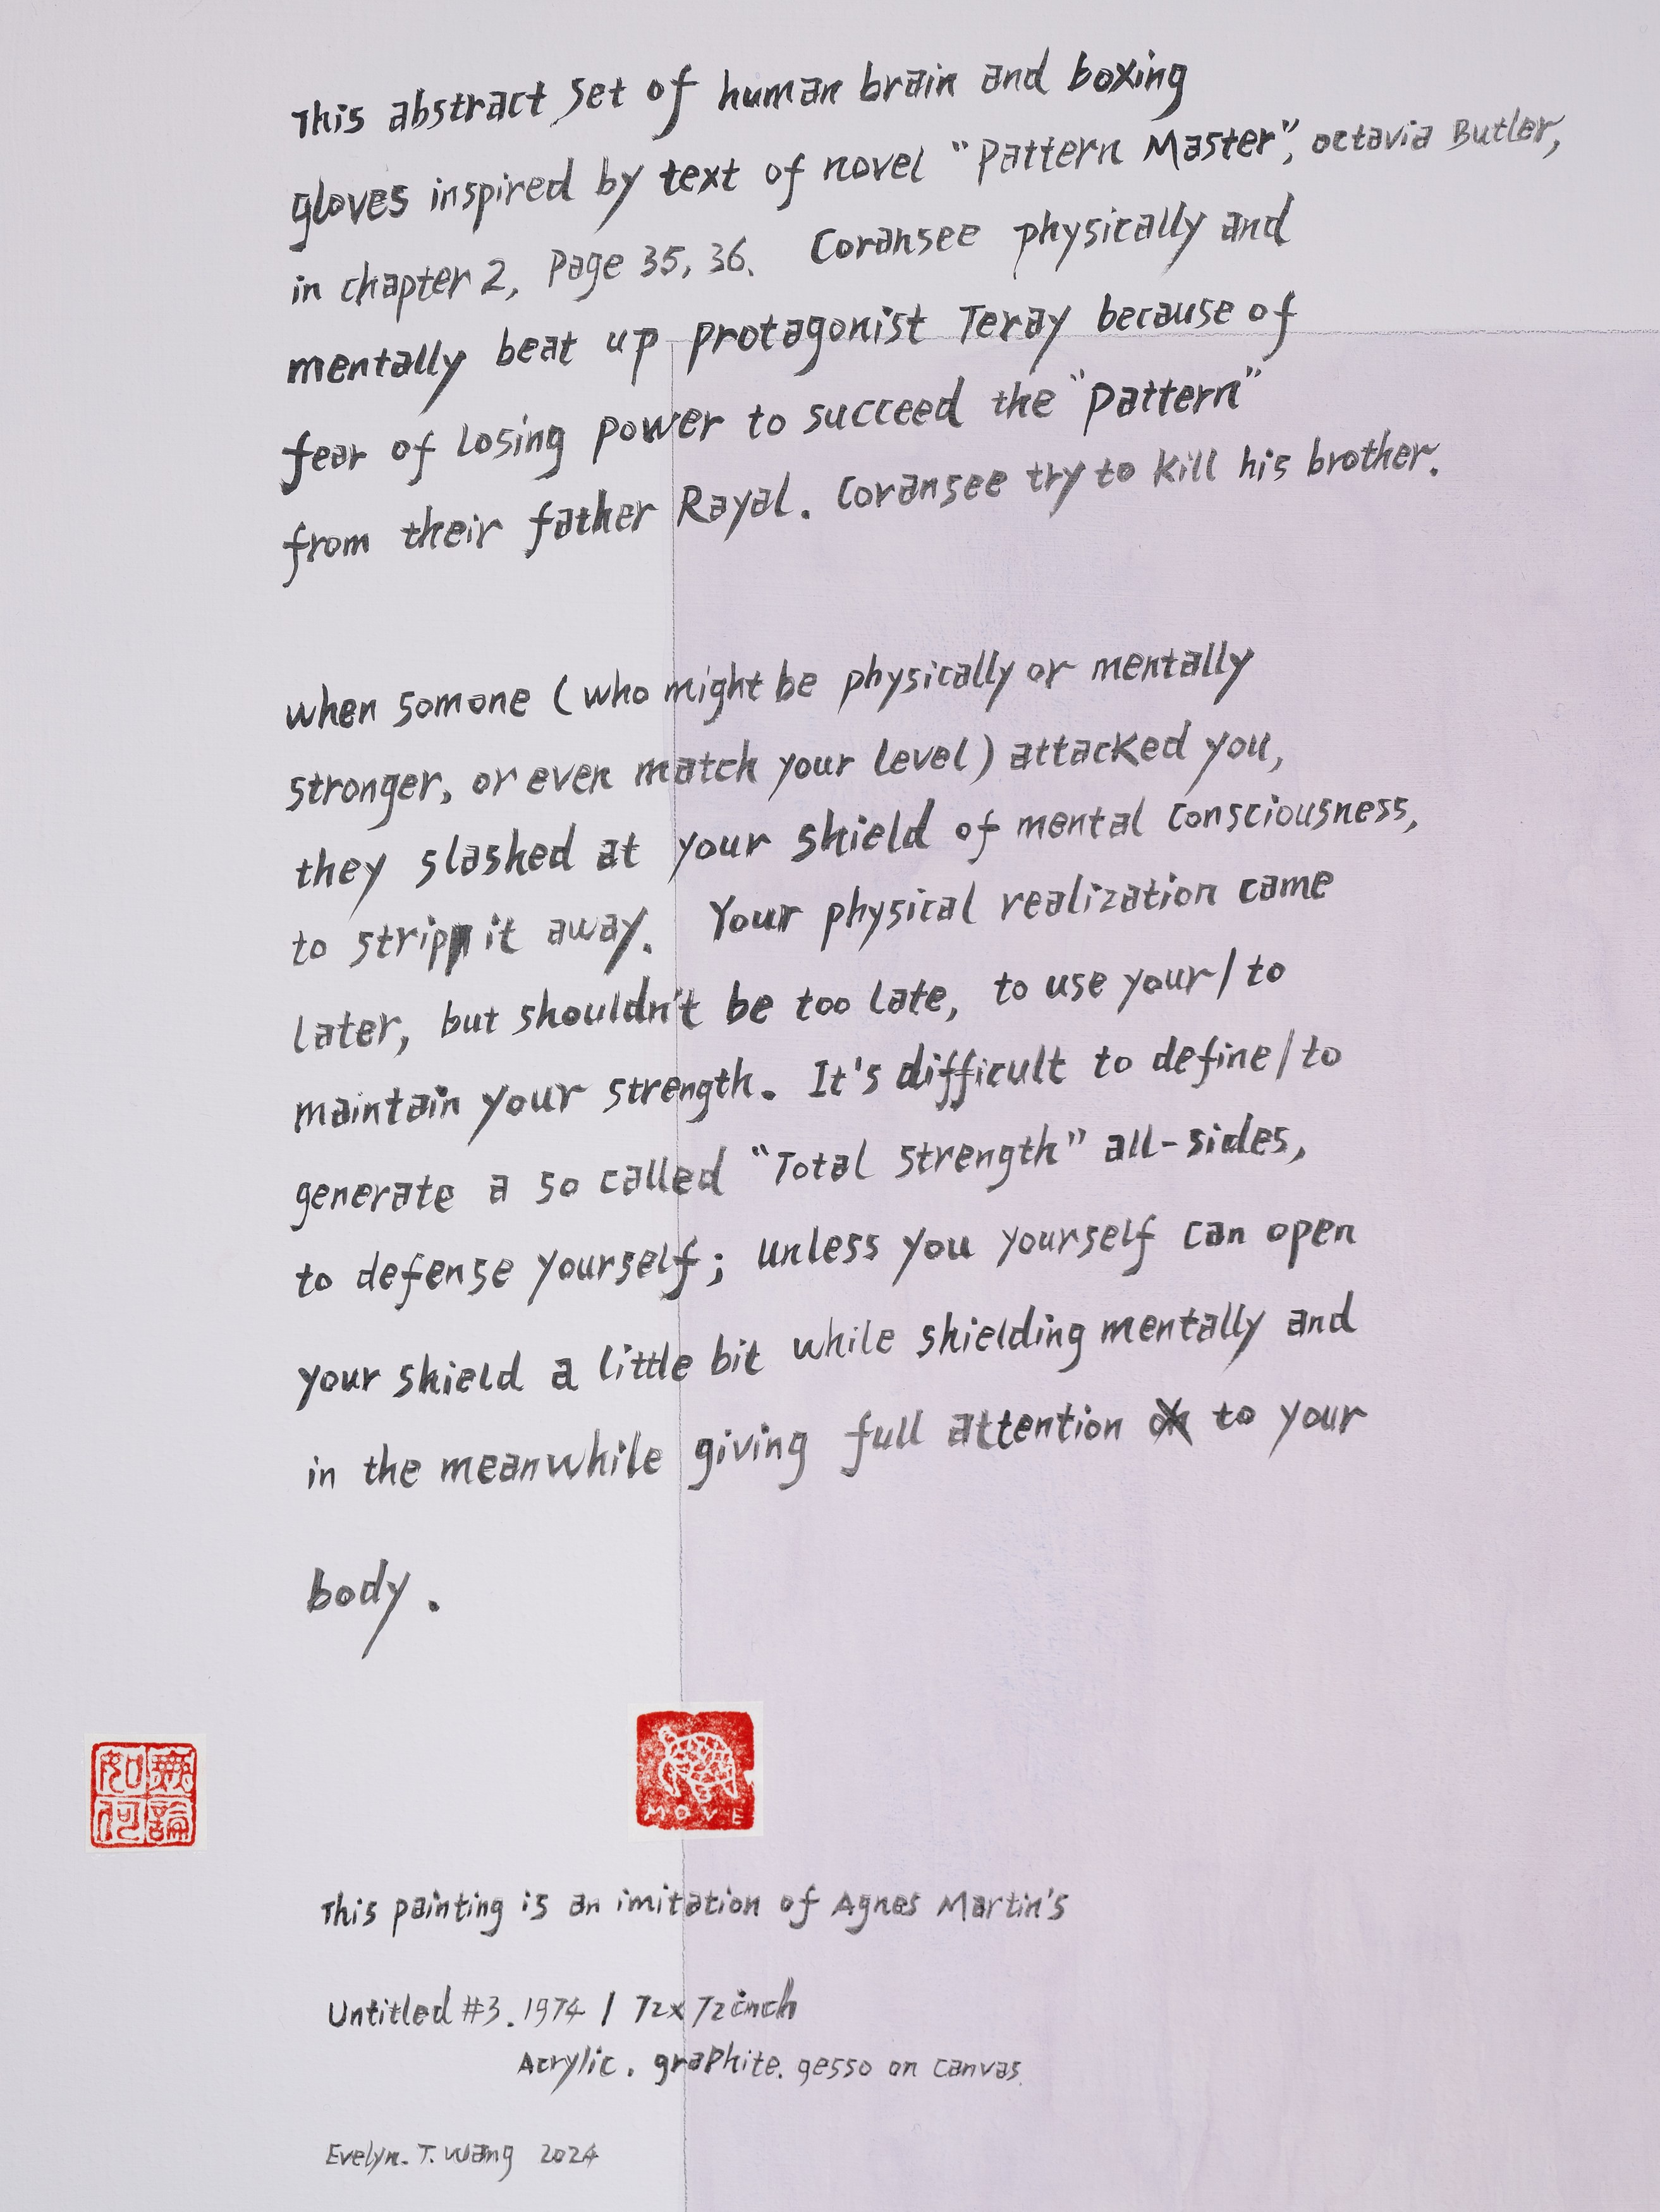 This abstract set of human brain and boxing
gloves inspired by text of novel "Pattern Master", octavia Butler,
in chapter 2, Page 35, 36. Coransee physically and
mentally beat up protagonist Teray because of
fear of losing power to succeed the "Pattern"
from their father Rayal. Coransee try to kill his brother.
when somone (who might be physically or mentally
stronger, or even match your level) attacked you,
they slashed at your shield of mental consciousness,
to strip it away. Your physical realization came
later, but shouldn't be too late, to use your/to
maintain your strength. It's difficult to define/to
generate a so called "Total strength" all-sides,
to defense yourself; unless you yourself can open
your shield a little bit while shielding mentally and
in the meanwhile giving full attention to your
body.
MOVE
無論如何
This painting is an imitation of Agnes Martin's
Untitled #3. 1974 / 72x72inch
Acrylic. graphite. gesso on canvas.
Evelyn. T. Wang 2024